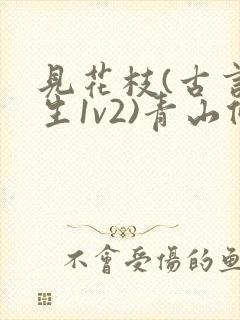 見花枝(古言
生1v2)青山
不會受傷的魚